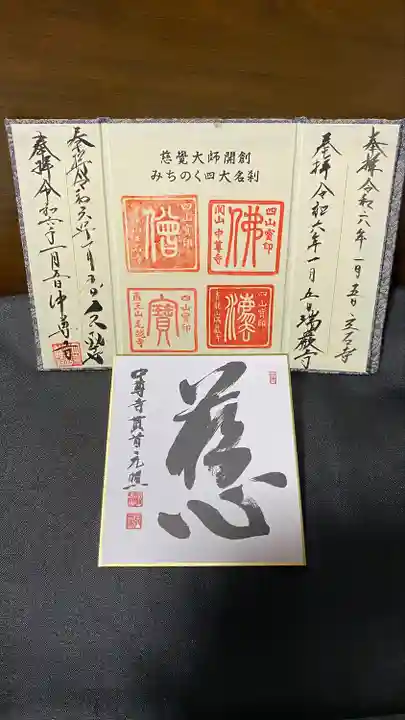 奉拝 令和六年一月五日 立石寺
奉拝 令和六年一月五日 瑞巌寺
慈覺大師開創
みちのく四大名刹
四山寳印
佛
関山 中尊寺
四山寳印
僧
四山寳印
法
四山寳印
寳
医王山 毛越寺
奉拝 令和六年一月五日
奉拝 令和六年一月五日 中尊寺
慈
中尊寺貫首 元照